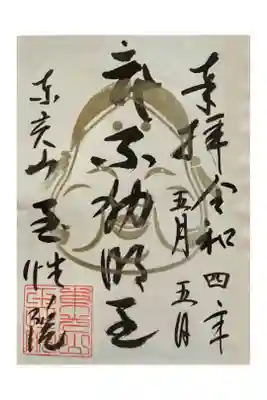 奉拝 令和四年
五月五日
武不動明王
東光山 玉性院